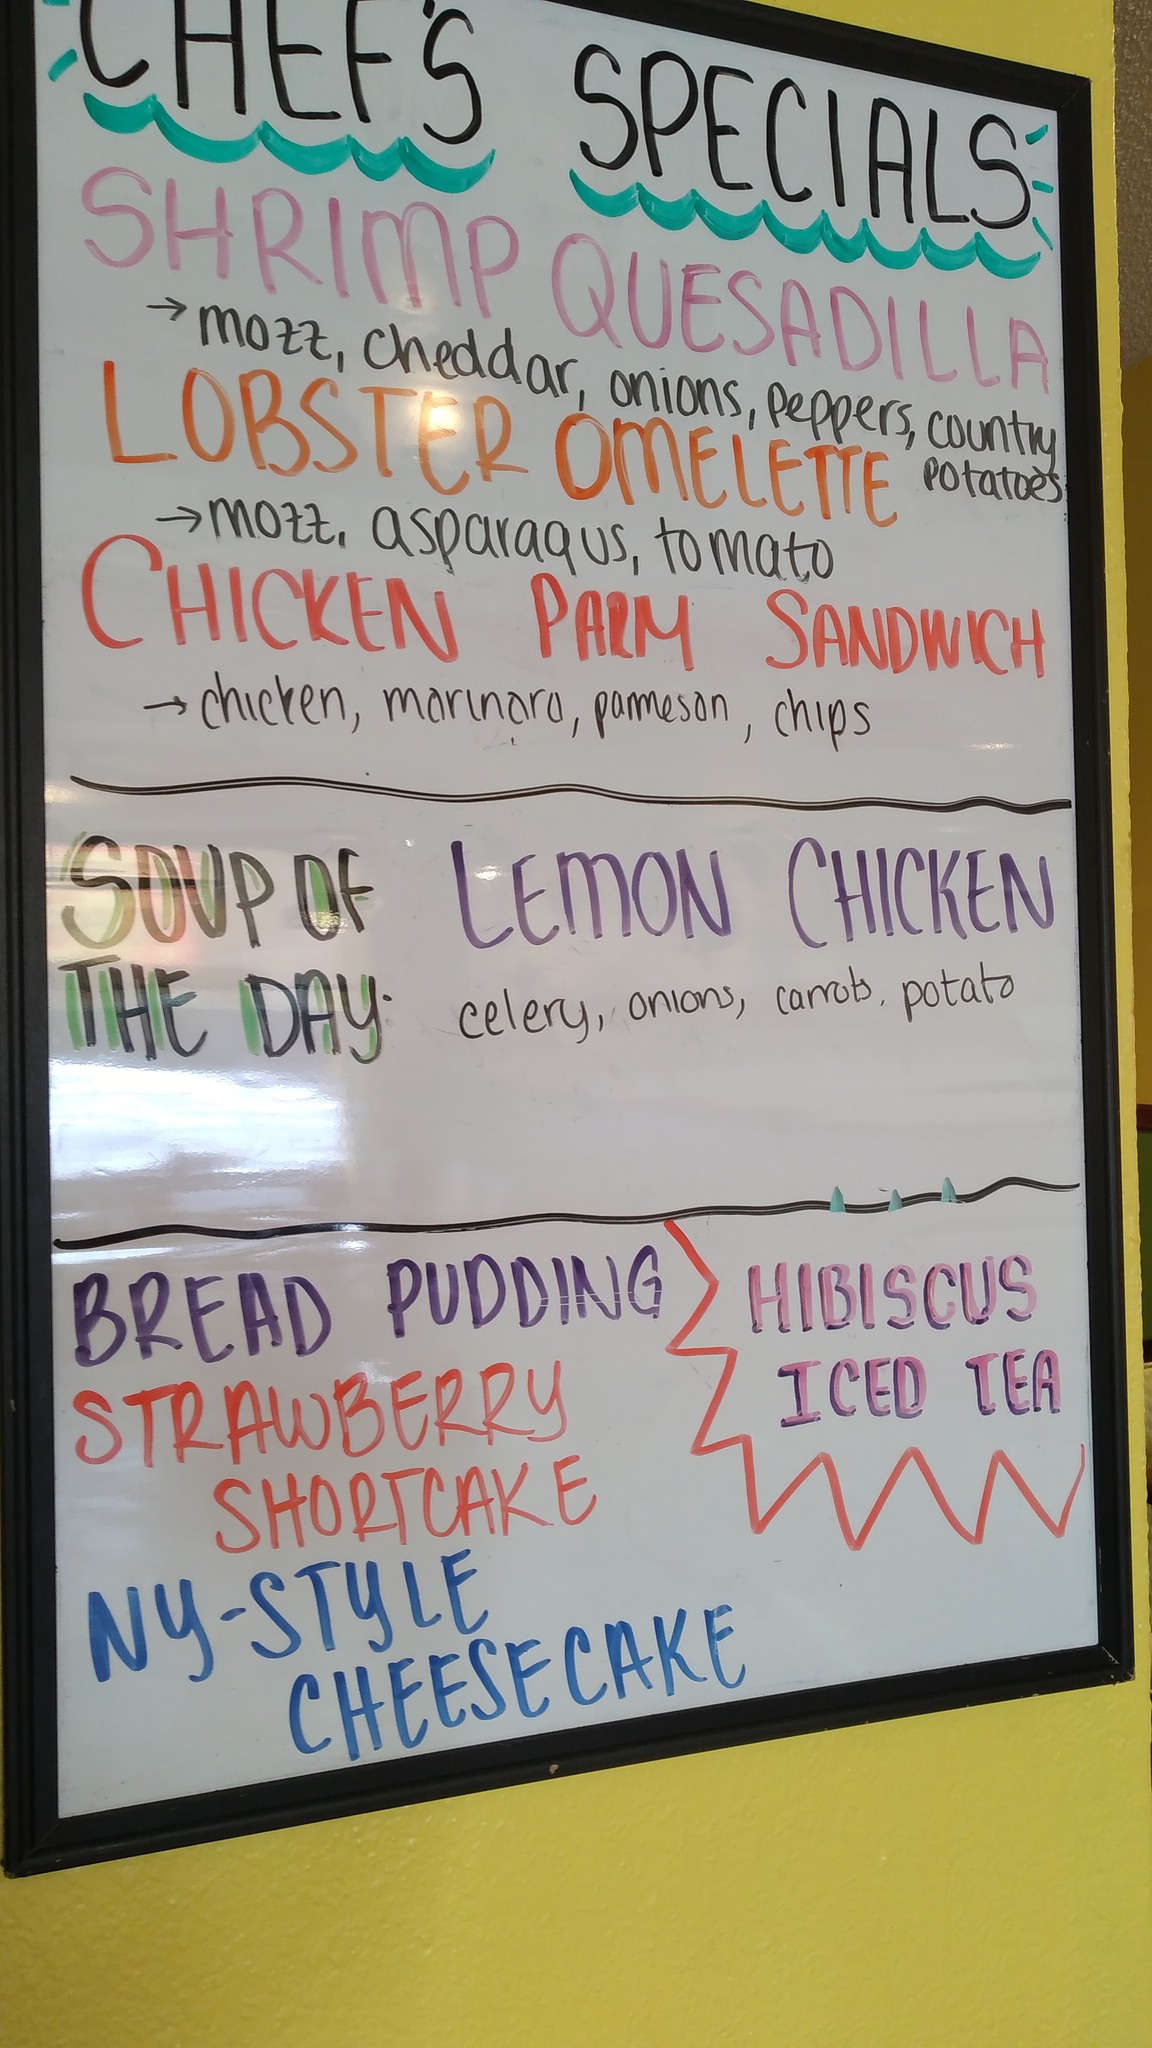 CHEF'S SPECIALS
SHRIMP QUESADILLA
→ mozz, cheddar, onions, peppers, country
potatoes
LOBSTER OMELETTE
→ mozz, asparagus, tomato
CHICKEN PARM SANDWICH
→ chicken, marinara, parmesan, chips
SOUP OF
THE DAY:
LEMON CHICKEN
celery, onions, carrots, potato
BREAD PUDDING
STRAWBERRY
SHORTCAKE
NY-STYLE
CHEESECAKE
HIBISCUS
ICED TEA